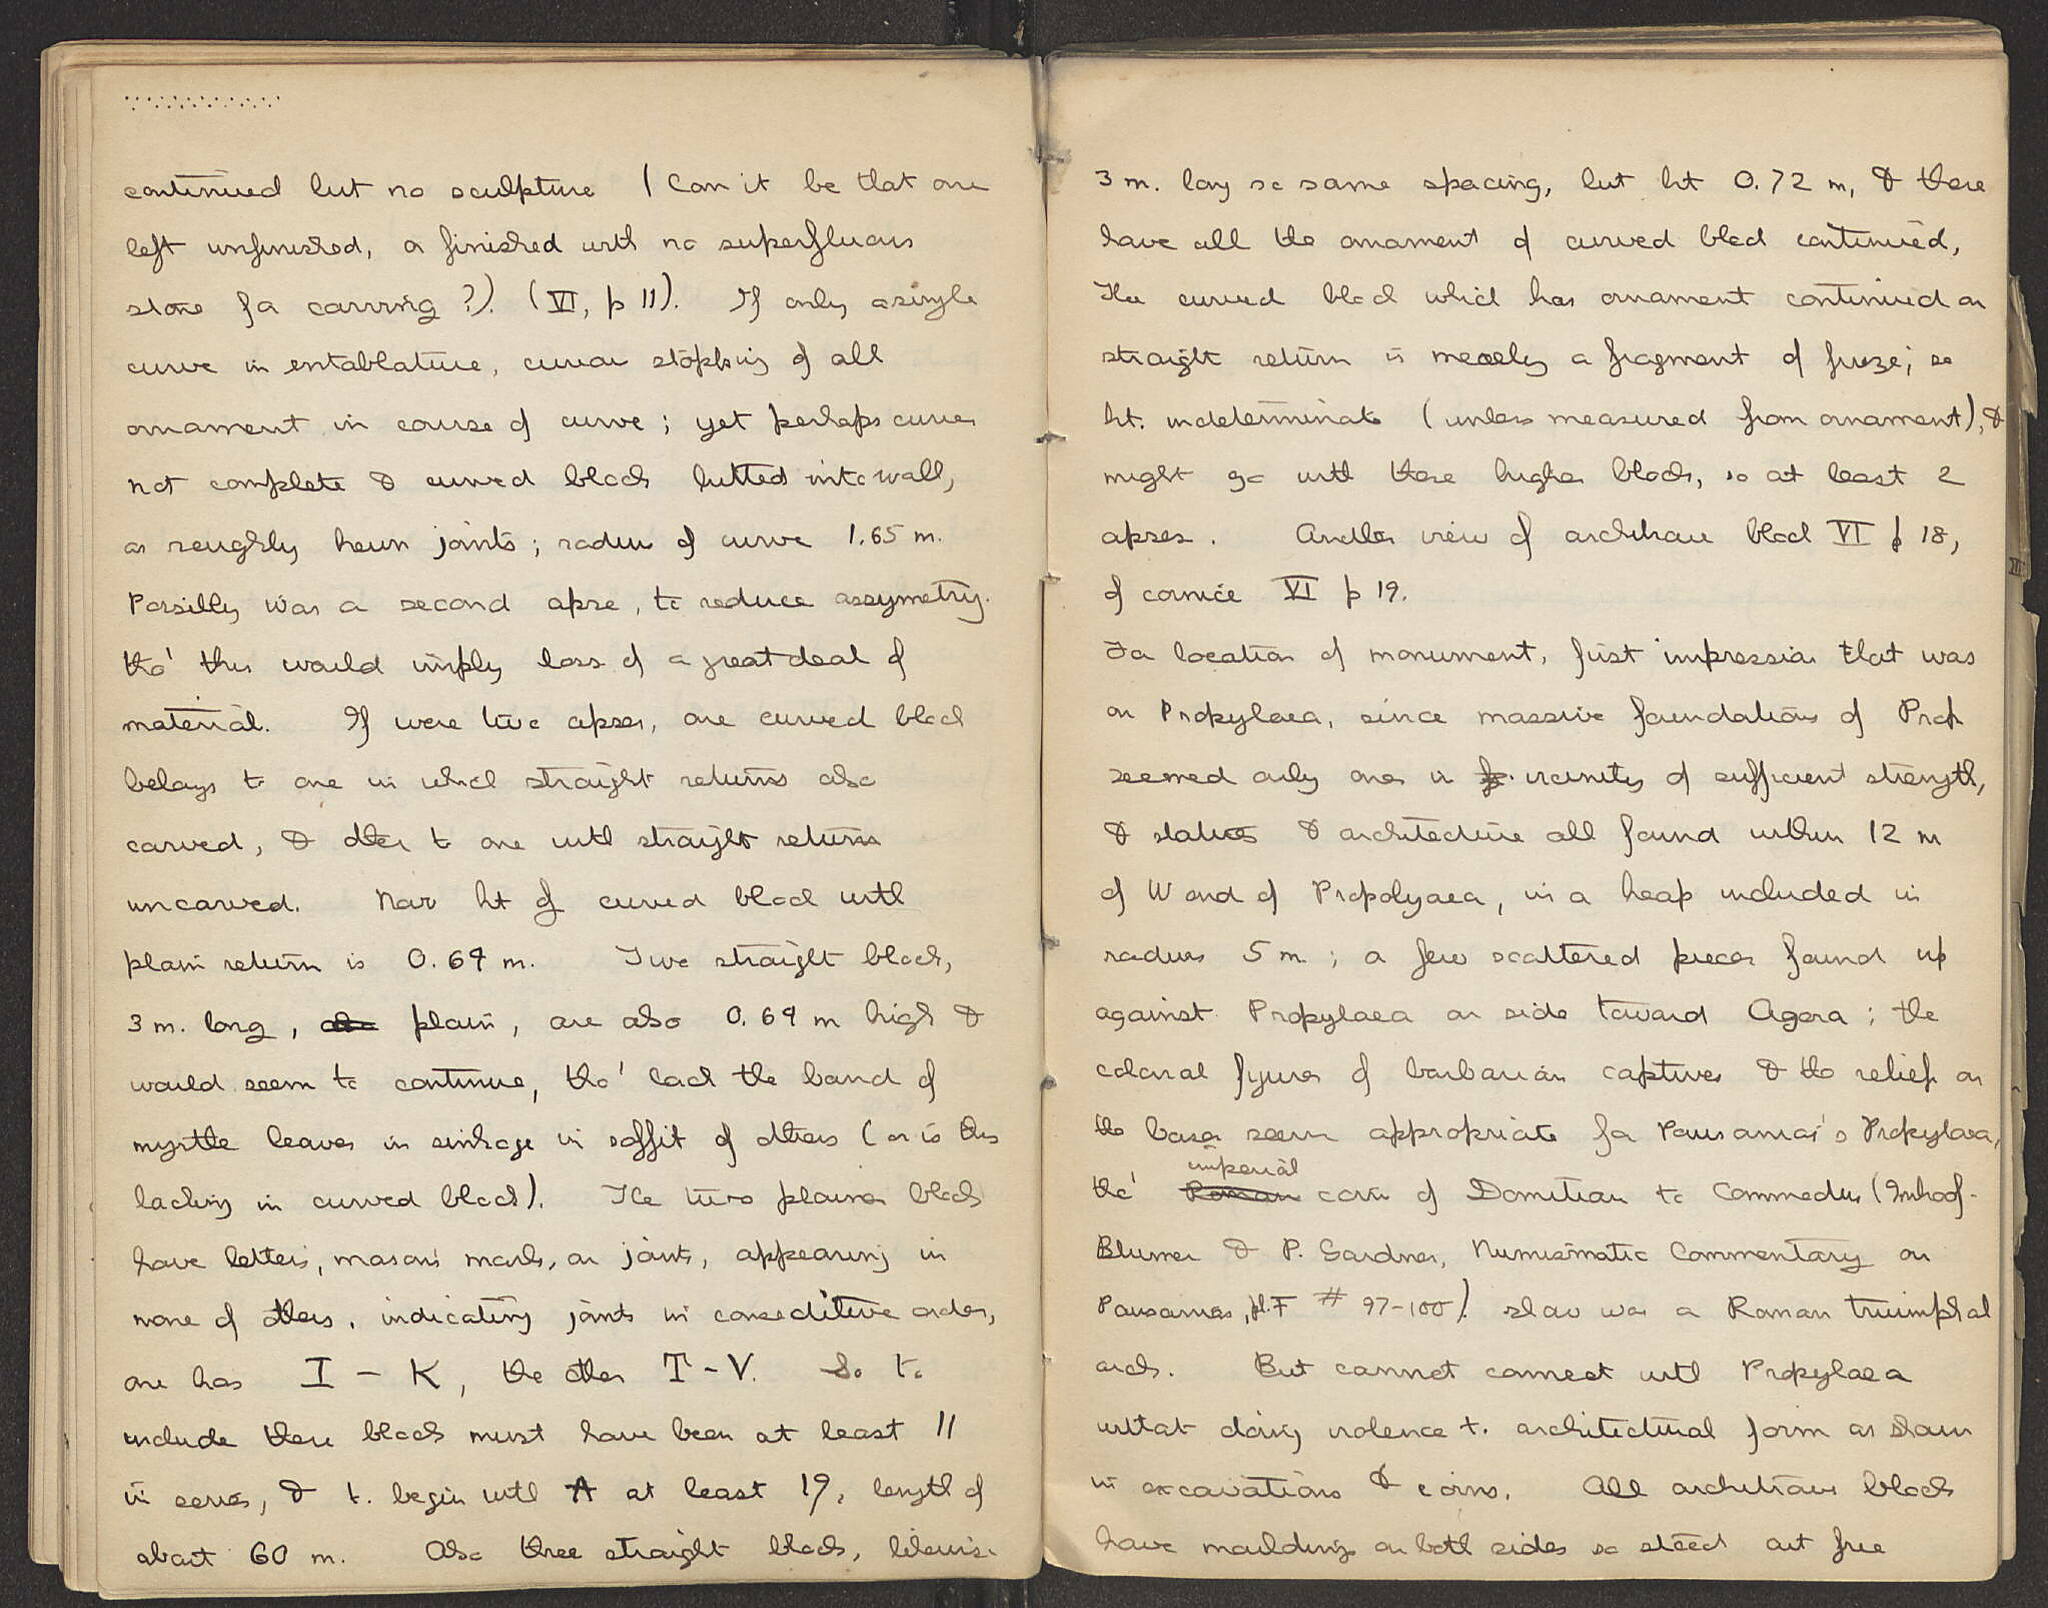 continued but no sculpture (Can it be that one
left unfinished, or finished with no superfluous
stone for carving?). (VI, p 11). If only a single
curve in entablature, curious stopping of all
ornament in course of curve; yet perhaps curves
not complete & curved blocks butted into wall,
as roughly hewn joints; radius of curve 1.65 m.
Possibly was a second apse, to reduce assymetry.
tho' this would imply loss of a great deal of
material. If were two apses, one curved block
belongs to one in which straight returns also
carved, & other to one with straight returns
uncarved. Now ht of curved block with
plain return is 0.69 m. Two straight blocks,
3 m. long, also plain, are also 0.69 m high &
would seem to continue, tho' lack the band of
myrtle leaves in sinkage in soffit of others (or is this
lacking in curved block). The two plainer blocks
have letters, masons marks, on joints, appearing in
none of others, indicating joints in consecutive order,
one has I - K, the other T - V. So to
include these blocks must have been at least 11
in series, & to begin with A at least 19, length of
about 60 m. Also three straight blocks, likewise
3 m. long so same spacing, but ht 0.72 m, & these
have all the ornament of curved block continued,
The curved block which has ornament continued on
straight return is merely a fragment of frieze; so
ht. indeterminate (unless measured from ornament), &
might go with these higher blocks, so at least 2
apses. Another view of architrave block VI p 18,
of cornice VI p 19.
For location of monument, first impression that was
on Propylaea, since massive foundations of Prop
seemed only ones in vicinity of sufficient strength,
& statues & architecture all found within 12 m
of W end of Propolyaea, in a heap included in
radius 5 m; a few scattered pieces found up
against Propylaea on side toward Agora; the
colossal figures of barbarian captives & the relief on
the bases seem appropriate for Pausanias's Propylaea,
tho' Roman imperial coins of Domitian to Commodus (Imhoof-
Blumer & P. Gardner, Numismatic Commentary on
Pausanias, pl. F # 97-100) show was a Roman triumphal
arch. But cannot connect with Propylaea
without doing violence to architectural form as shown
in excavations & coins. All architrave blocks
have mouldings on both sides so stood out free